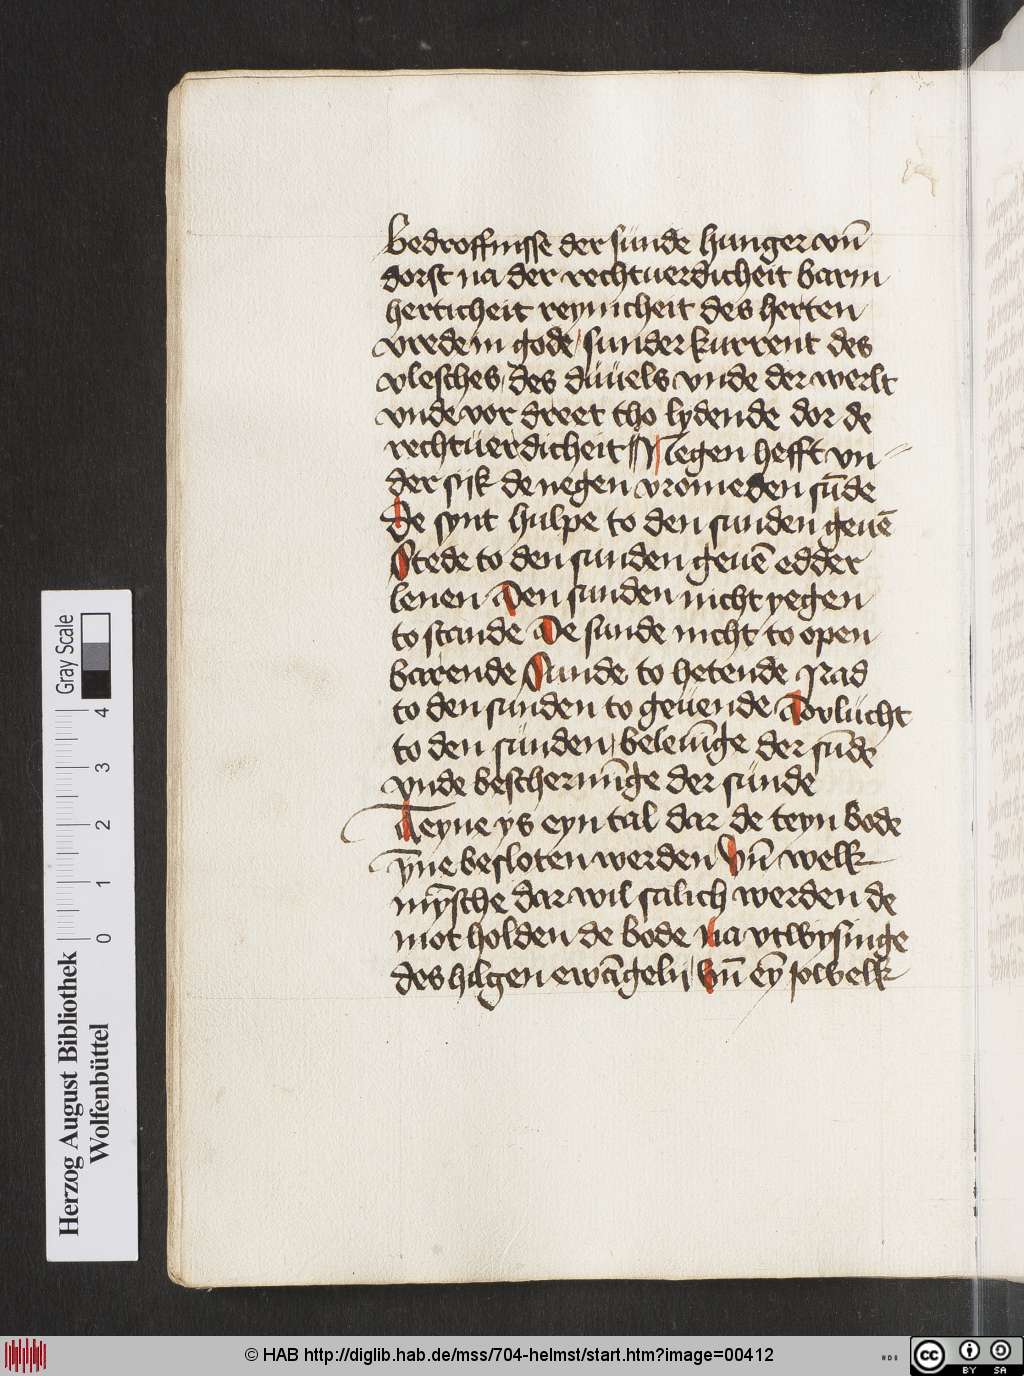 bedroffnisse der sunde hunger vn̄
dorst na der rechtuerdicheit barm
herticheit reynicheit des herten
vredem gode / sunder kurrent des
vlesches / des düuels vnde der werlt
vnde vor dreet tho lydende dor de
rechtuerdicheit Negen hefft vn
der sijk de negen vromeden sūde
De synt hulpe to den sunden geuē
Stede to den sunden geuē edder
lenen Den sunden nicht yegen
to stande De sunde nicht to open
barende Sunde to hetende Rad
to den sunden to geuende Dorlücht
to den sünden / beleuīge der sūde
vnde beschermīge der sünde
Teyne ys eyn tal dar de teyn bode
ȳne besloten werden Vn̄ welk
mȳsche dar wil salich werden de
mot holden de bode na vtwysinge
des hilgen ewāgelij Vn̄ eȳ jowelk
Herzog August Bibliothek
Wolfenbüttel
Gray Scale
0 1 2 3 4
© HAB http://diglib.hab.de/mss/704-helmst/start.htm?image=00412
CC BY SA